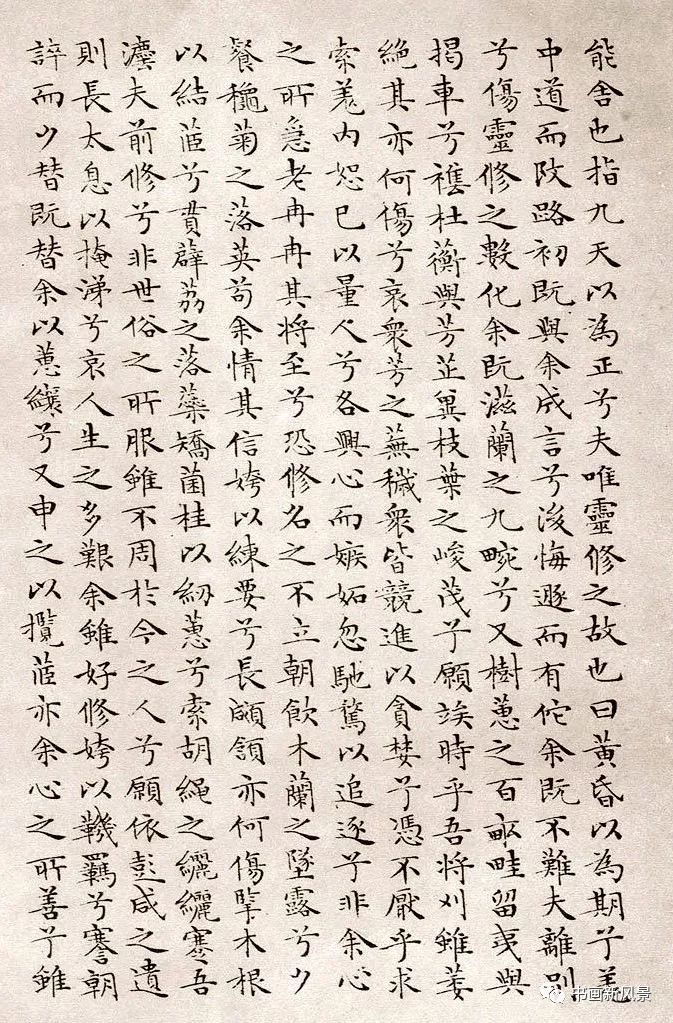 能舍也指九天以為正兮夫唯靈修之故也曰黃昏以為期兮羌
中道而改路初既與余成言兮後悔遯而有佗余既不難夫離別
兮傷靈修之數化余既滋蘭之九畹兮又樹蕙之百畝畦留夷與
揭車兮襍杜蘅與芳芷冀枝葉之峻茂兮願竢時乎吾將刈雖萎
絕其亦何傷兮哀衆芳之蕪穢衆皆競進以貪婪兮憑不厭乎求
索羌內恕己以量人兮各興心而嫉妬忽馳騖以追逐兮非余心
之所急老冉冉其將至兮恐修名之不立朝飲木蘭之墜露兮夕
餐龝菊之落英苟余情其信姱以練要兮長顑頷亦何傷擥木根
以結茝兮貫薜荔之落蘂矯菌桂以紉蕙兮索胡繩之纚纚謇吾
灋夫前修兮非世俗之所服雖不周於今之人兮願依彭咸之遺
則長太息以掩涕兮哀人生之多艱余雖好修姱以鞿羈兮謇朝
誶而夕替既替余以蕙纕兮又申之以攬茝亦余心之所善兮雖
书画新风景